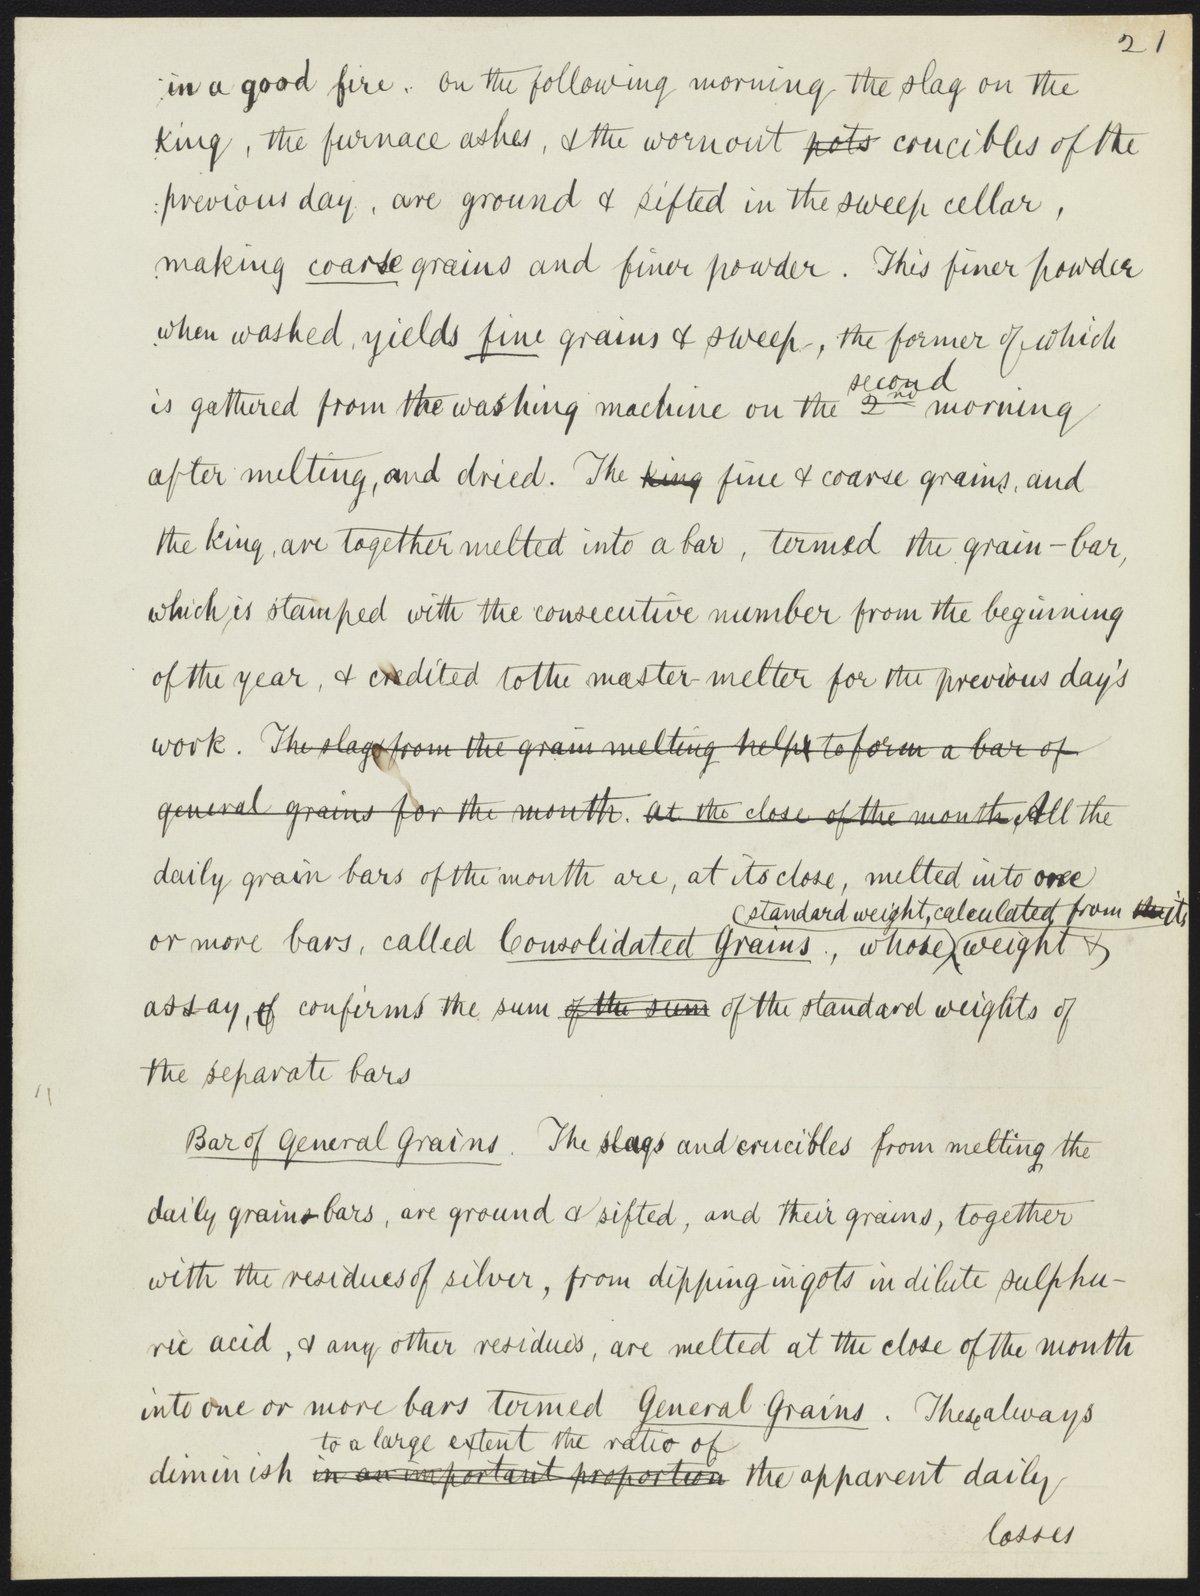 21
in a good fire. On the following morning the slag on the
king, the furnace ashes, & the wornout pots crucibles of the
previous day, are ground & sifted in the sweep cellar,
making coarse grains and finer powder. This finer powder
when washed, yields fine grains & sweep, the former of which
second
is gathered from the washing machine on the 2nd morning
after melting, and dried. The king fine & coarse grains, and
the king, are together melted into a bar, termed the grain-bar,
which is stamped with the consecutive number from the beginning
of the year, & credited to the master-melter for the previous day's
work. The slags from the grain melting helps to form a bar of
general grains for the month. At the close of the month, All the
daily grain bars of the month are, at its close, melted into one
(standard weight, calculated from its
or more bars, called Consolidated Grains, whose weight &
assay, confirms the sum of the sum of the standard weights of
the separate bars
Bar of General Grains. The slags and crucibles from melting the
daily grains bars, are ground & sifted, and their grains, together
with the residues of silver, from dipping ingots in dilute sulphu-
ric acid, & any other residues, are melted at the close of the month
into one or more bars termed General Grains. These always
to a large extent the ratio of
diminish in an important proportion the apparent daily
losses